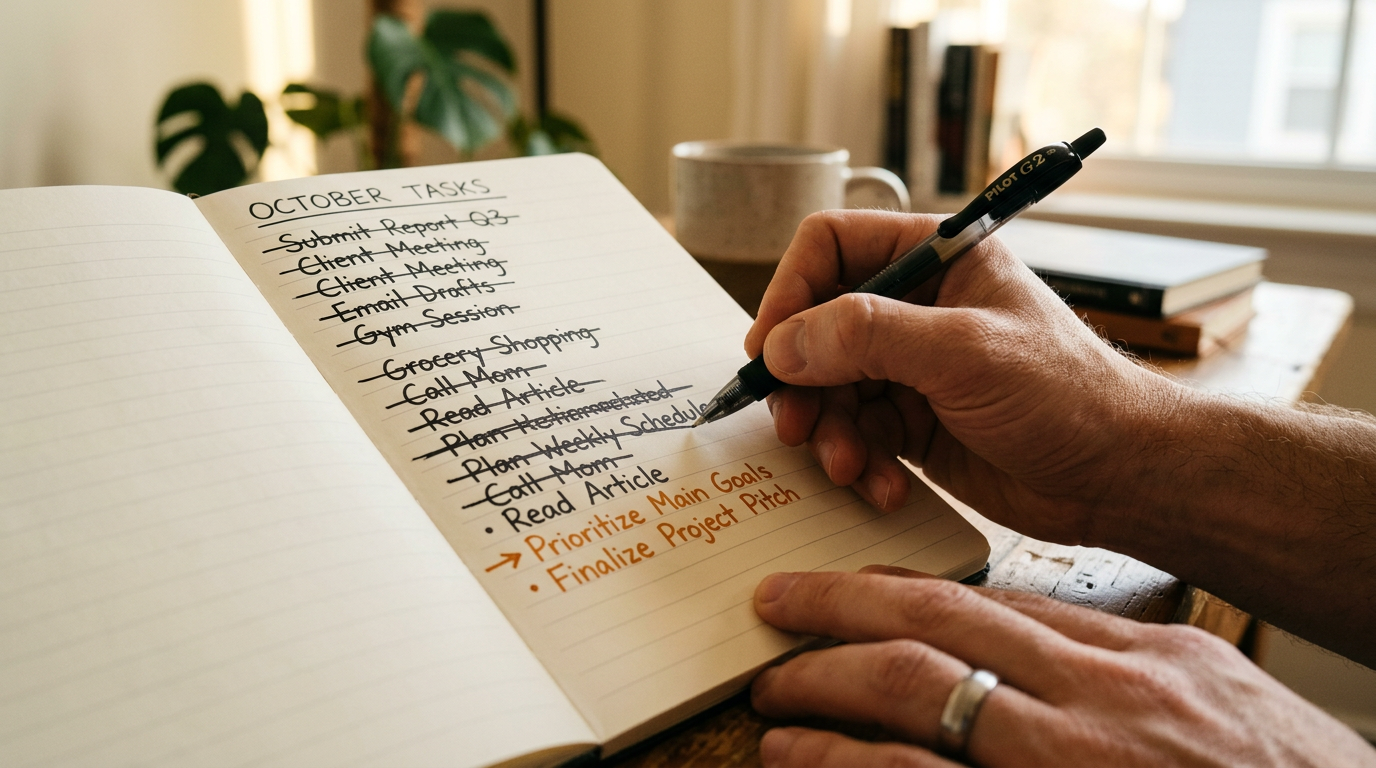 OCTOBER TASKS
Submit Report Q3
Client Meeting
Client Meeting
Email Drafts
Gym Session
Grocery Shopping
Call Mom
Read Article
Plan
Plan Weekly Schedule
Call Mom
• Read Article
→ Prioritize Main Goals
• Finalize Project Pitch
PILOT G2